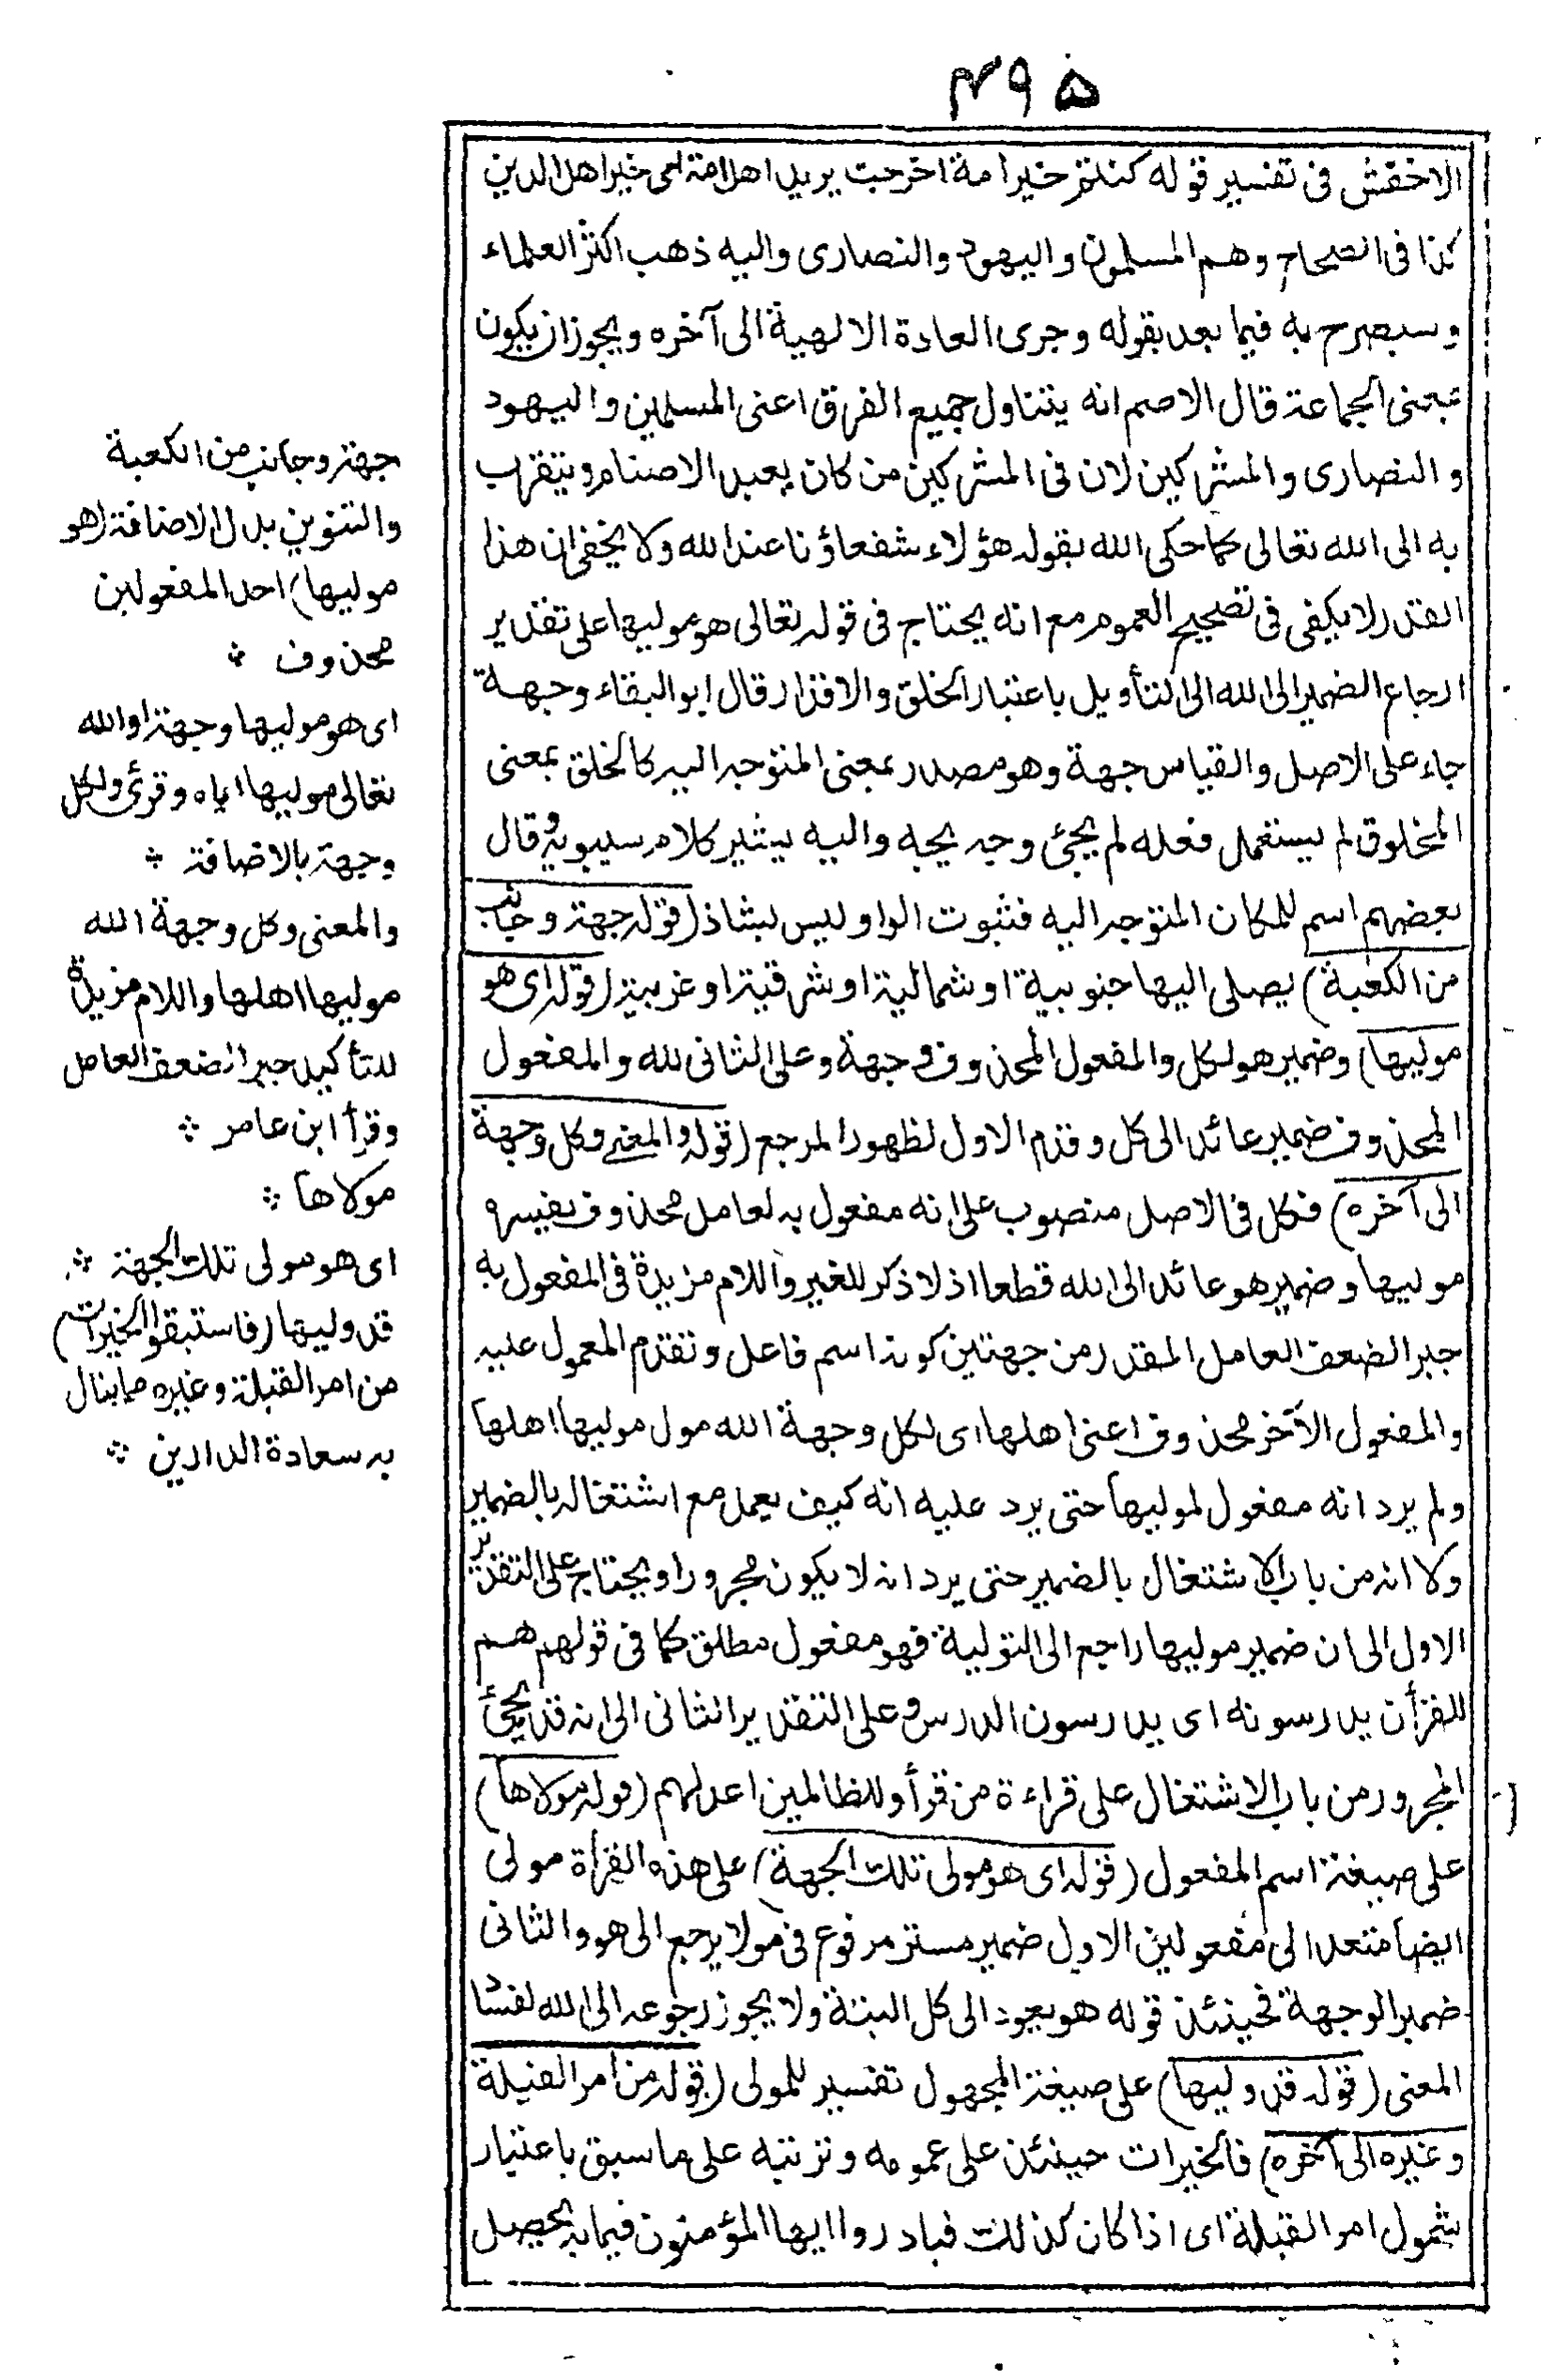 ۴۹۵
الاخفش فى تفسير قوله كنتم خير امة اخرجت يريد اهل امة اى خير اهل الدين
كذا فى الصحاح وهم المسلمون واليهود والنصارى واليه ذهب اكثر العلماء
وسيصرح به فيما بعد بقوله وجرى العادة الالهية الى آخره ويجوز ان يكون
بمعنى الجماعة قال الاصم انه يتناول جميع الفرق اعنى المسلمين واليهود
والنصارى والمشركين لان فى المشركين من كان يعبد الاصنام ويتقرب
به الى الله تعالى كما حكى الله بقوله هؤلاء شفعاؤنا عند الله ولا يخفى ان هذا
القدر لا يكفى فى تصحيح العموم مع انه يحتاج فى قوله تعالى هو موليها على تقدير
ارجاع الضمير الى الله الى التأويل باعتبار الخلق والاقدار قال ابو البقاء وجهة
جاء على الاصل والقياس جهة وهو مصدر بمعنى المتوجه اليه كالخلق بمعنى
المخلوق لم يستعمل فعله لم يجئ وجه يجه واليه يشير كلام سيبويه وقال
بعضهم اسم للمكان المتوجه اليه فثبوت الواو ليس بشاذ (قوله جهة وجانب
من الكعبة) يصلى اليها جنوبية او شمالية او شرقية او غربية (قوله اى هو
موليها) وضمير هو لكل والمفعول المحذوف وجهة وعلى الثانى لله والمفعول
المحذوف ضمير عائد الى كل وقدم الاول لظهور المرجع (قوله والمعنى وكل وجهة
الى آخره) فكل فى الاصل منصوب على انه مفعول به لعامل محذوف يفسره
موليها وضمير هو عائد الى الله قطعا اذ لا ذكر للغير واللام مزيدة فى المفعول به
جبرا لضعف العامل المقدر من جهتين كونه اسم فاعل وتقدم المعمول عليه
والمفعول الآخر محذوف اعنى اهلها اى لكل وجهة الله مول موليها اهلها
ولم يرد انه مفعول لموليها حتى يرد عليه انه كيف يعمل مع اشتغاله بالضمير
ولا انه من باب الاشتغال بالضمير حتى يرد انه لا يكون مجرورا ويحتاج على التقدير
الاول الى ان ضمير موليها راجع الى التولية فهو مفعول مطلق كما فى قولهم هم
للقرأن يدرسونه اى يدرسون الدرس وعلى التقدير الثانى الى انه قد يجئ
المجرور من باب الاشتغال على قراءة من قرأ وللظالمين اعد لهم (قوله مولاها)
على صيغة اسم المفعول (قوله اى هو مولى تلك الجهة) على هذه القرأة مولى
ايضا متعد الى مفعولين الاول ضمير مستتر مرفوع فى مولا يرجع الى هو والثانى
ضمير الوجهة فحينئذ قوله هو يعود الى كل البتة ولا يجوز رجوعه الى الله لفساد
المعنى (قوله قد وليها) على صيغة المجهول تفسير للمولى (قوله من امر القبلة
وغيره الى آخره) فالخيرات حينئذ على عمومه وترتبه على ما سبق باعتبار
شمول امر القبلة اى اذا كان كذلك فبادروا ايها المؤمنون فيما به يحصل
جهة وجانب من الكعبة
والتنوين بدل الاضافة (هو
موليها) احد المفعولين
محذوف
اى هو موليها وجهة او الله
تعالى موليها اياه وقرئ ولكل
وجهة بالاضافة
والمعنى وكل وجهة الله
موليها اهلها واللام مزيدة
للتأكيد جبرا لضعف العامل
وقرأ ابن عامر
مولاها
اى هو مولى تلك الجهة
قد وليها (فاستبقوا الخيرات)
من امر القبلة وغيره مما ينال
به سعادة الدارين